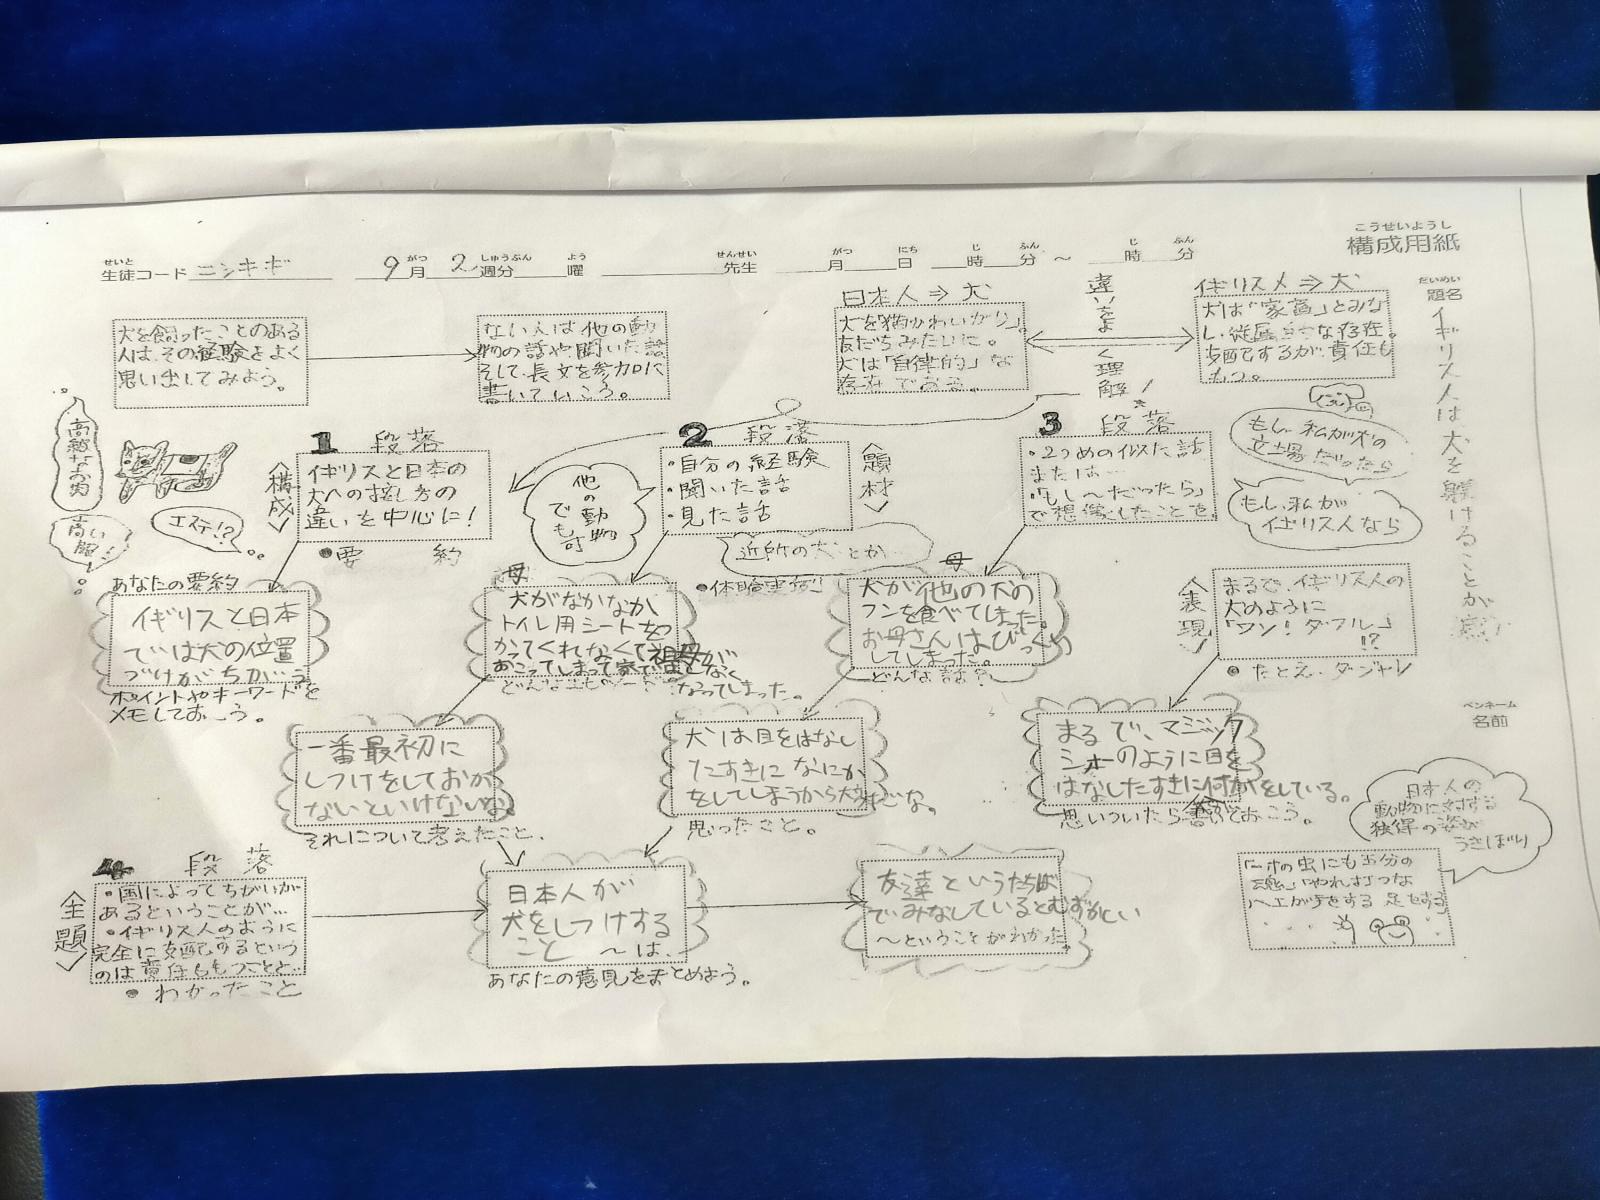 こうせいようし
構成用紙
せいと
生徒コード ニシキギ
9月 2週分 曜 先生 月 日 時 分 ～ 時 分
がつ しゅうぶん よう せんせい がつ にち じ ふん じ ふん
だいめい
題名
イギリス人は犬を躾けることが
ペンネーム
名前
犬を飼ったことのある
人は、その経験をよく
思い出してみよう。
ない人は他の動
物の話や聞いた話
そして、長文を参加に
書いていこう。
日本人⇒犬
犬を「猫かわいがり」。
友だちみたいに。
犬は「自律的」な
存在である。
違いをよく理解!
イギリス人⇒犬
犬は「家畜」とみな
し、従属的な存在。
支配するが、責任も
もつ。
高級なお肉
高い服!
エステ!?
1 段落
〈構成〉
イギリスと日本の
犬への接し方の
違いを中心に!
●要 約
2 段落
〈題材〉
・自分の経験
・聞いた話
・見た話
他の動物でも可
近所の犬とか…
●体験実例
3 段落
・2つめの似た話
または…
・「もし～だったら」
で想像したことを。
もし、私が犬の
立場だったら
もし、私が
イギリス人なら
〈表現〉
まるで、イギリス人の
犬のように
「ワン!ダフル」
!?
●たとえ・ダジャレ
あなたの要約
イギリスと日本
では犬の位置
づけがちがう
ポイントやキーワードを
メモしておこう。
母
犬がなかなか
トイレ用シートをつ
かってくれなくて祖母が
おこってしまって家では
なくなってしまった。
母
犬が他の犬の
フンを食べてしまった。
お母さんはびっくり
してしまった。
どんな話?
一番最初に
しつけをしておか
ないといけないな。
それについて考えたこと、
犬は目をはなし
たすきになにか
をしてしまうから大変だな。
思ったこと。
まるで、マジック
ショーのように目を
はなしたすきに何かをしている。
思いついたら書いておこう。
4 段落
〈主題〉
・国によってちがいが
あるということが…
・イギリス人のように
完全に支配するという
のは責任ももつことと…
●わかったこと
日本人が
犬をしつけする
こと ～は、
あなたの意見をまとめよう。
友達といううたちば
でみなしているとむずかしい
～ということがわかった。
日本人の
動物に対する
独得の姿が
うきぼり
「一寸の虫にも五分の
魂」「やれ打つな
ハエが手をする 足をする」